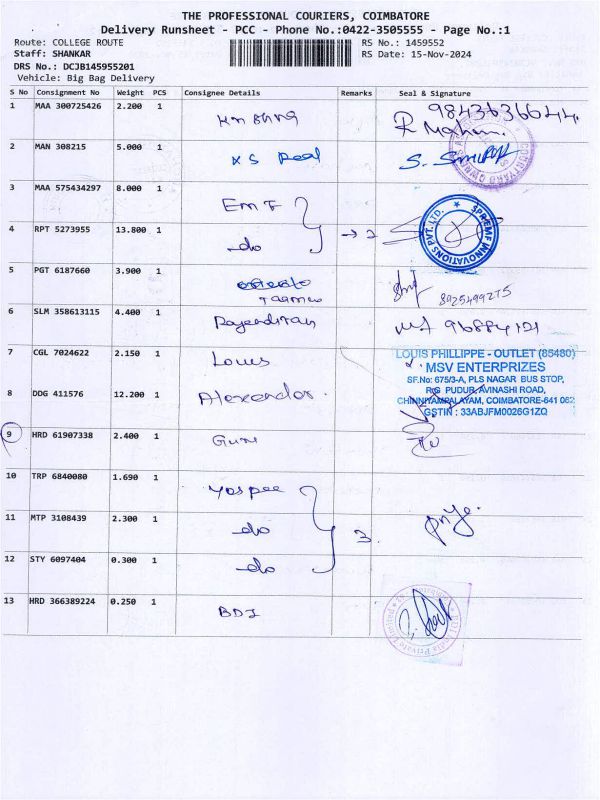 THE PROFESSIONAL COURIERS, COIMBATORE
Delivery Runsheet - PCC - Phone No.:0422-3505555 - Page No.:1
Route: COLLEGE ROUTE RS No.: 1459552
Staff: SHANKAR RS Date: 15-Nov-2024
DRS No.: DCJB145955201
Vehicle: Big Bag Delivery
S No Consignment No Weight PCS Consignee Details Remarks Seal & Signature
1 MAA 300725426 2.200 1
2 MAN 308215 5.000 1 KS
3 MAA 575434297 8.000 1 EMF
4 RPT 5273955 13.800 1 do → 2
SPR EMF INNOVATIONS PVT. LTD.
5 PGT 6187660 3.900 1 8925499275
6 SLM 358613115 4.400 1
7 CGL 7024622 2.150 1 Louis
LOUIS PHILLIPPE - OUTLET (85480)
MSV ENTERPRIZES
SF.No: 675/3-A, PLS NAGAR BUS STOP,
R/G PUDUR, AVINASHI ROAD,
CHINNIYAMPALAYAM, COIMBATORE-641 062
GSTIN : 33ABJFM0026G1ZQ
8 DDG 411576 12.200 1 Alexander.
9 HRD 61907338 2.400 1
10 TRP 6840080 1.690 1
11 MTP 3108439 2.300 1 do 3
12 STY 6097404 0.300 1 do
13 HRD 366389224 0.250 1 BDI